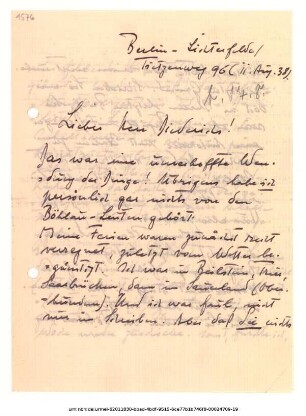 1576
Berlin-Lichterfelde
Tietzenweg 96 (11. Aug. 38)
Lieber Herr Diederichs!
Das war eine unverhoffte Wen-
dung der Dinge! Übrigens habe ich
persönlich gar nichts von den
Böhlau-Leuten gehört.
Meine Ferien waren zunächst recht
verregnet, zuletzt vom Wetter be-
günstigt. Ich war in Beilstein, Trier,
Saarbrücken, dann in Sauerland (Ober-
kirchen). Und ich war faul, nicht
nur im Schreiben. Aber daß die nichts